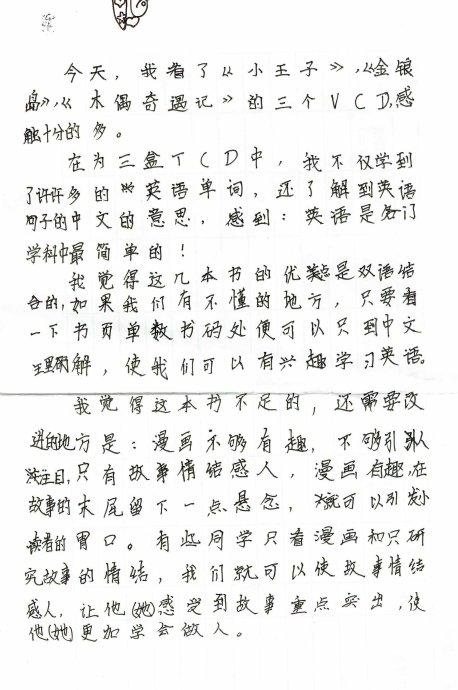 今天，我看了《小王子》,《金银
岛》,《木偶奇遇记》的三个VCD,感
触十分的多。
在为三盒TCD中，我不仅学到
了许许多的英语单词，还了解到英语
句子的中文的意思，感到：英语是各门
学科中最简单的！
我觉得这几本书的优点是双语结
合的，如果我们有不懂的地方，只要看
一下书页单数书码处便可以只到中文
理解，使我们可以有兴趣学习英语。
我觉得这本书不足的，还需要改
进的地方是：漫画不够有趣，不够引人
注目，只有故事情结感人，漫画有趣，在
故事的末尾留下一点悬念，就可以引发小
读者的胃口。有些同学只看漫画和只研
究故事的情结，我们就可以使故事情结
感人，让他(她)感受到故事重点突出，使
他(她)更加学会做人。